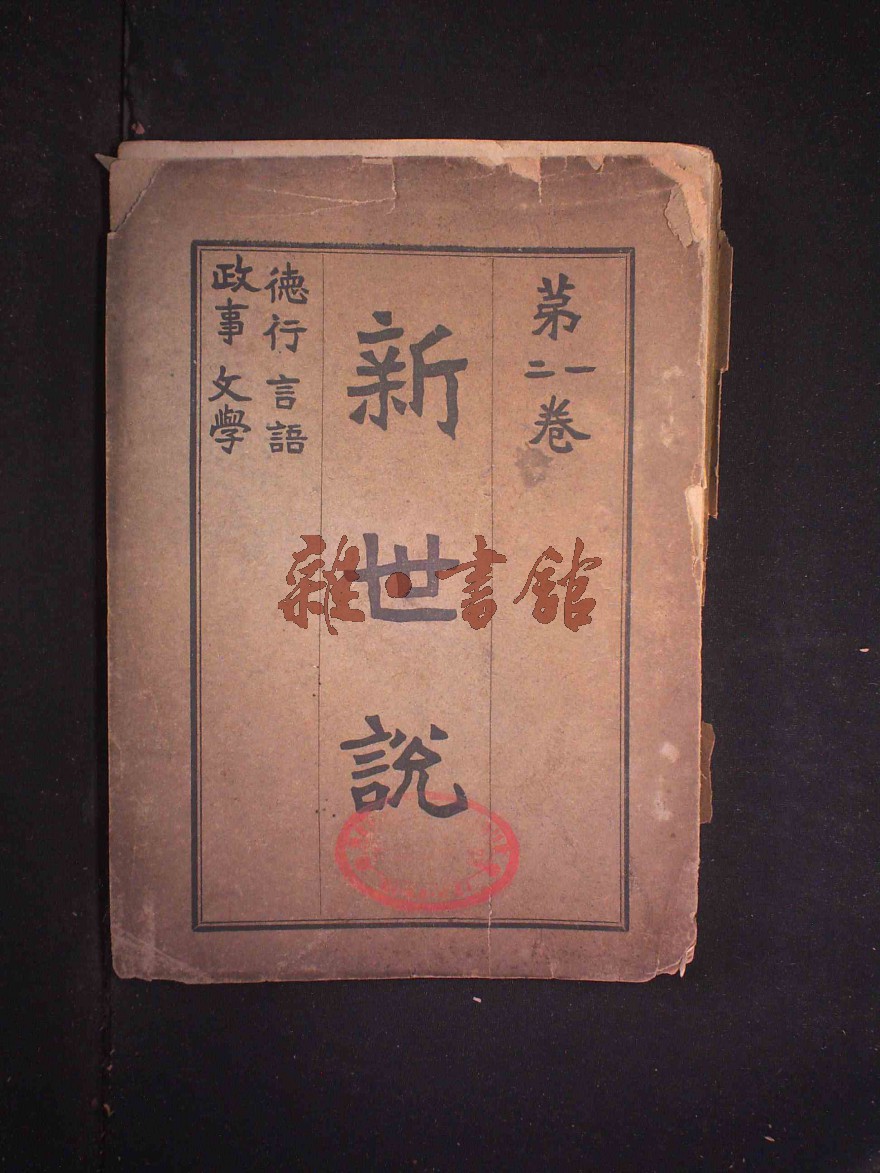 第一二卷
新世說
德行 言語
政事 文學
雜·書館